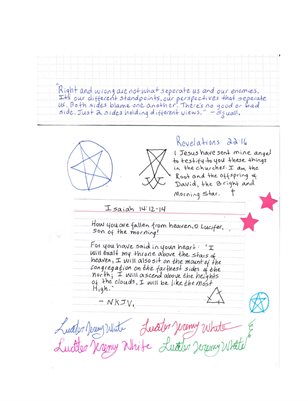 "Right and wrong are not what seperate us and our enemies.
It's our different standpoints, our perspectives that seperate
us. Both sides blame one another. There's no good or bad
side. Just 2 sides holding different views." - Squall
Revelations 22:16
I, Jesus have sent mine angel
to testify to you these things
in the churches. I am the
Root and the offspring of
David, the Bright and
Morning Star.
Isaiah 14:12-14
How you are fallen from heaven, O Lucifer,
son of the morning!
For you have said in your heart: "I
will exalt my throne above the stars of
heaven, I will also sit on the mount of the
congregation on the farthest sides of the
north; I will ascend above the heights
of the clouds, I will be like the Most
High."
- NKJV.
Lucifer Jeremy White Lucifer Jeremy White
Lucifer Jeremy White Lucifer Jeremy White